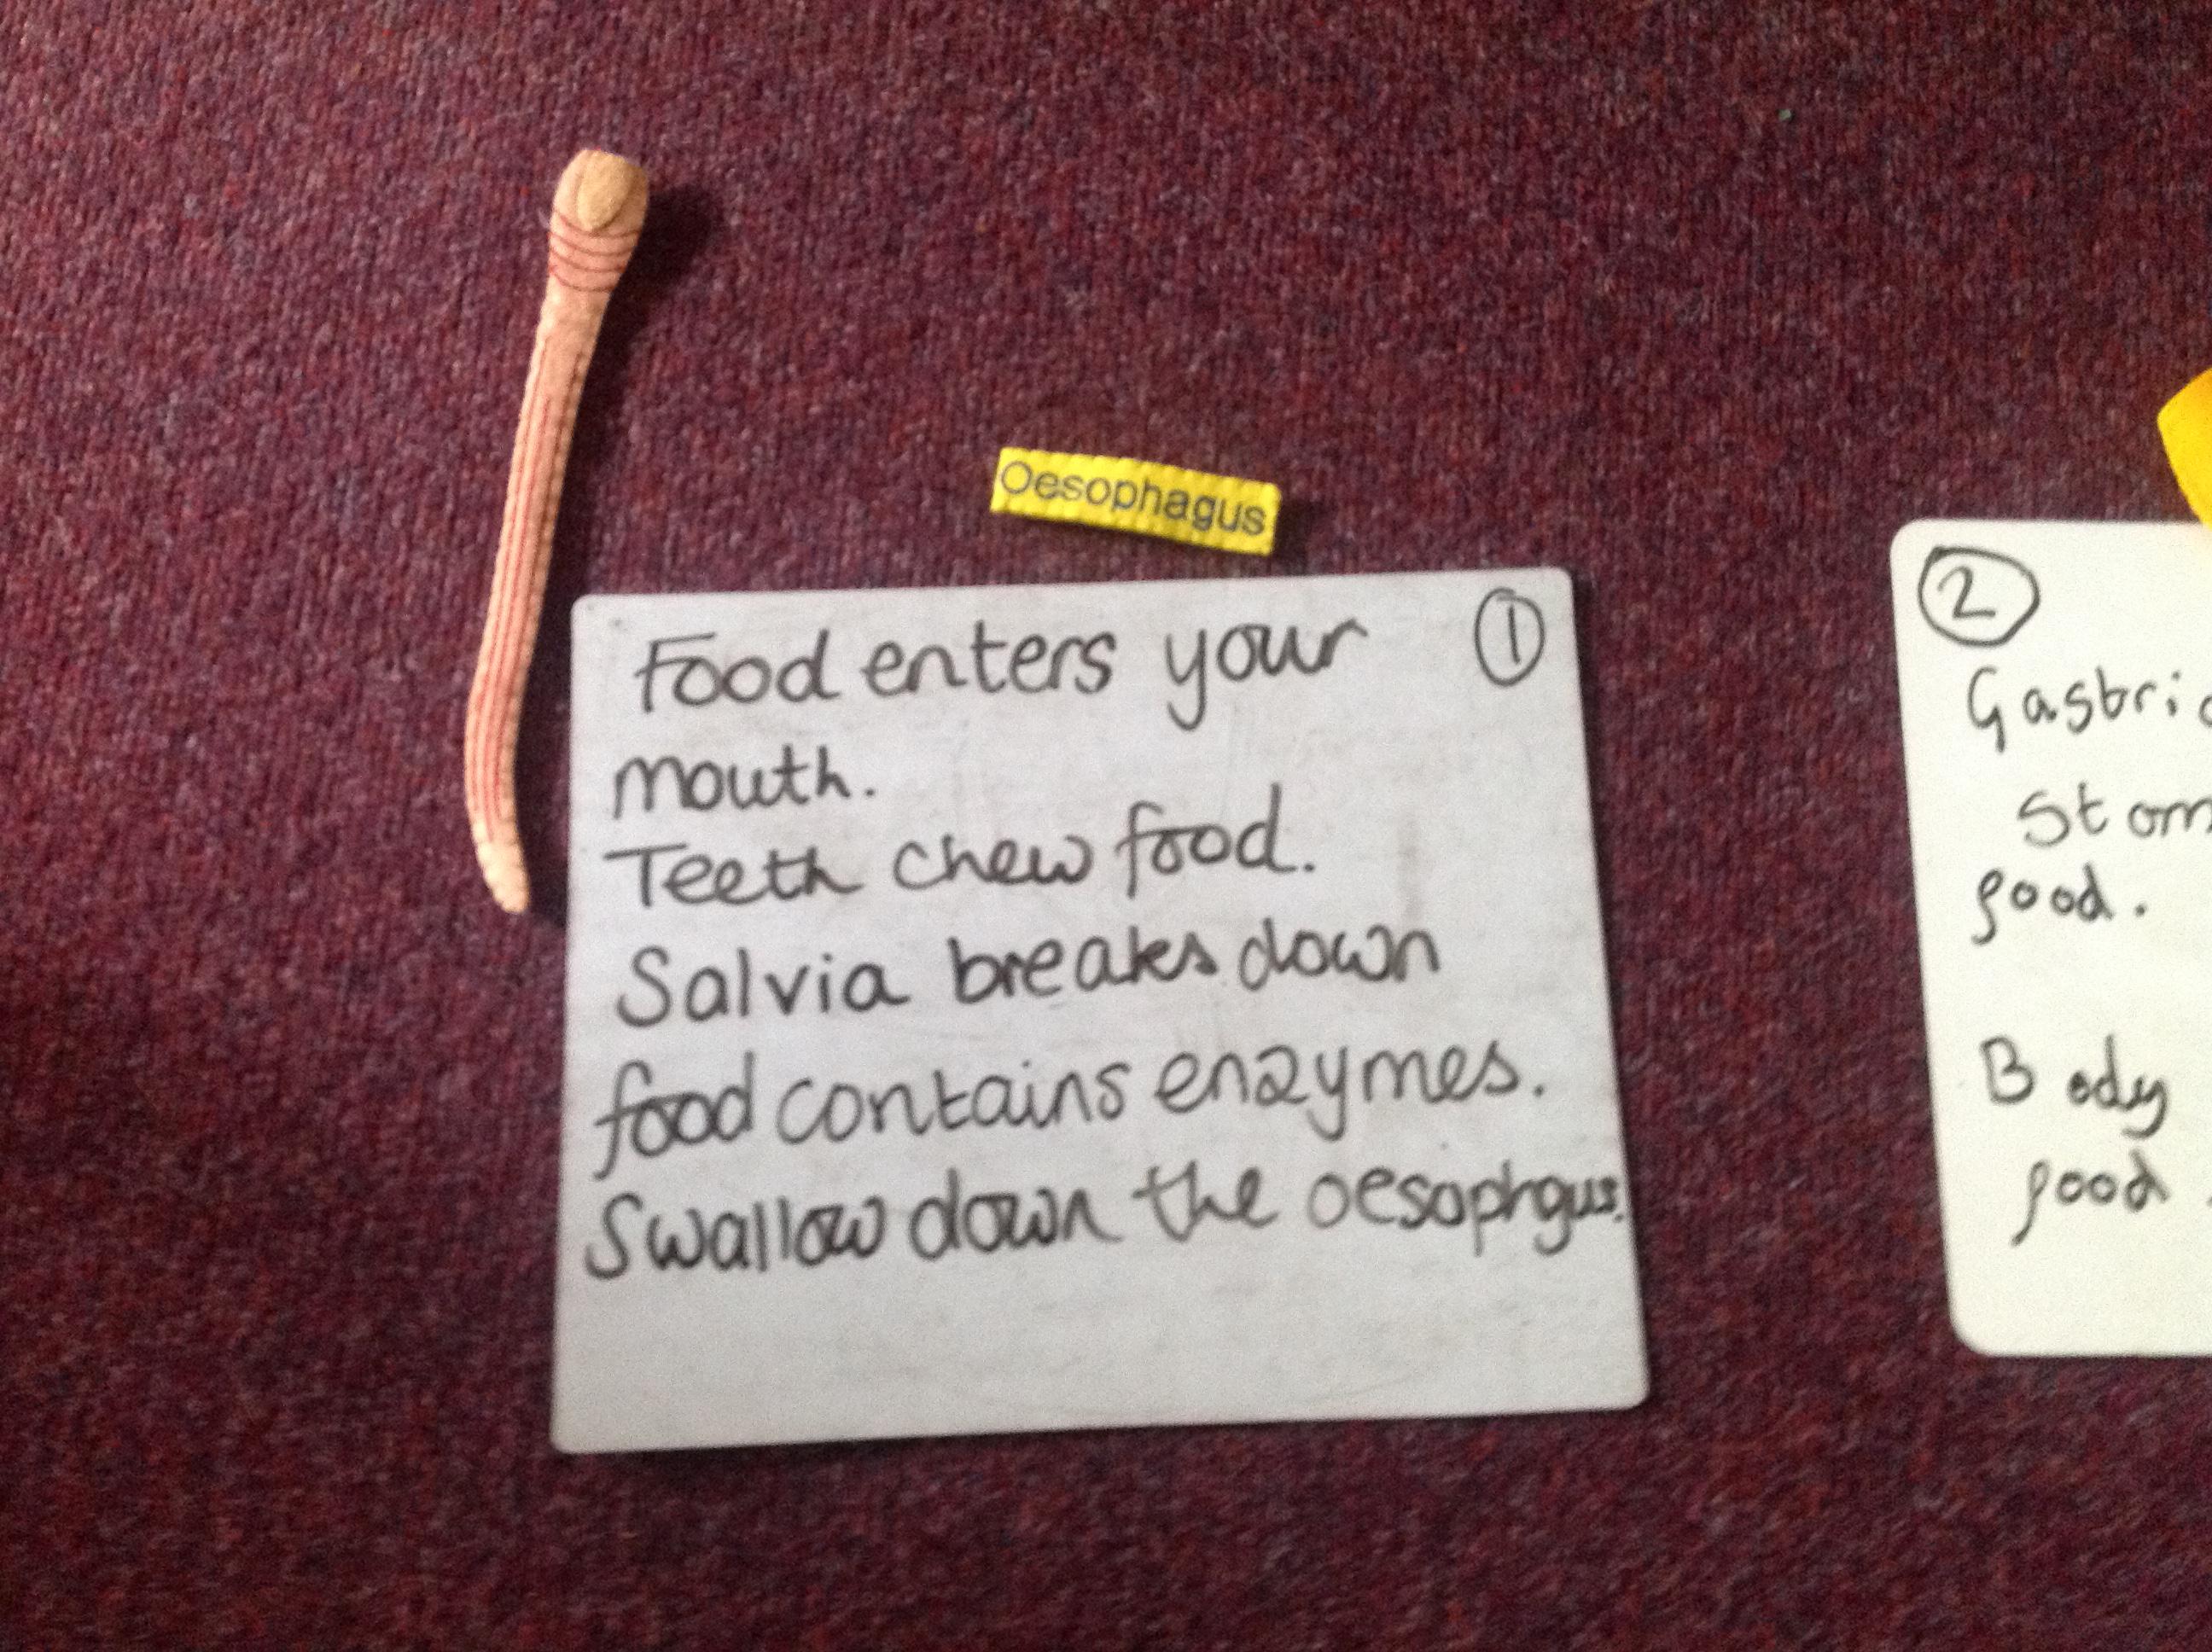 Oesophagus
Food enters your ①
mouth.
Teeth chew food.
Salvia breaks down
food contains enzymes.
Swallow down the oesophgus.
②
food.
Body
food